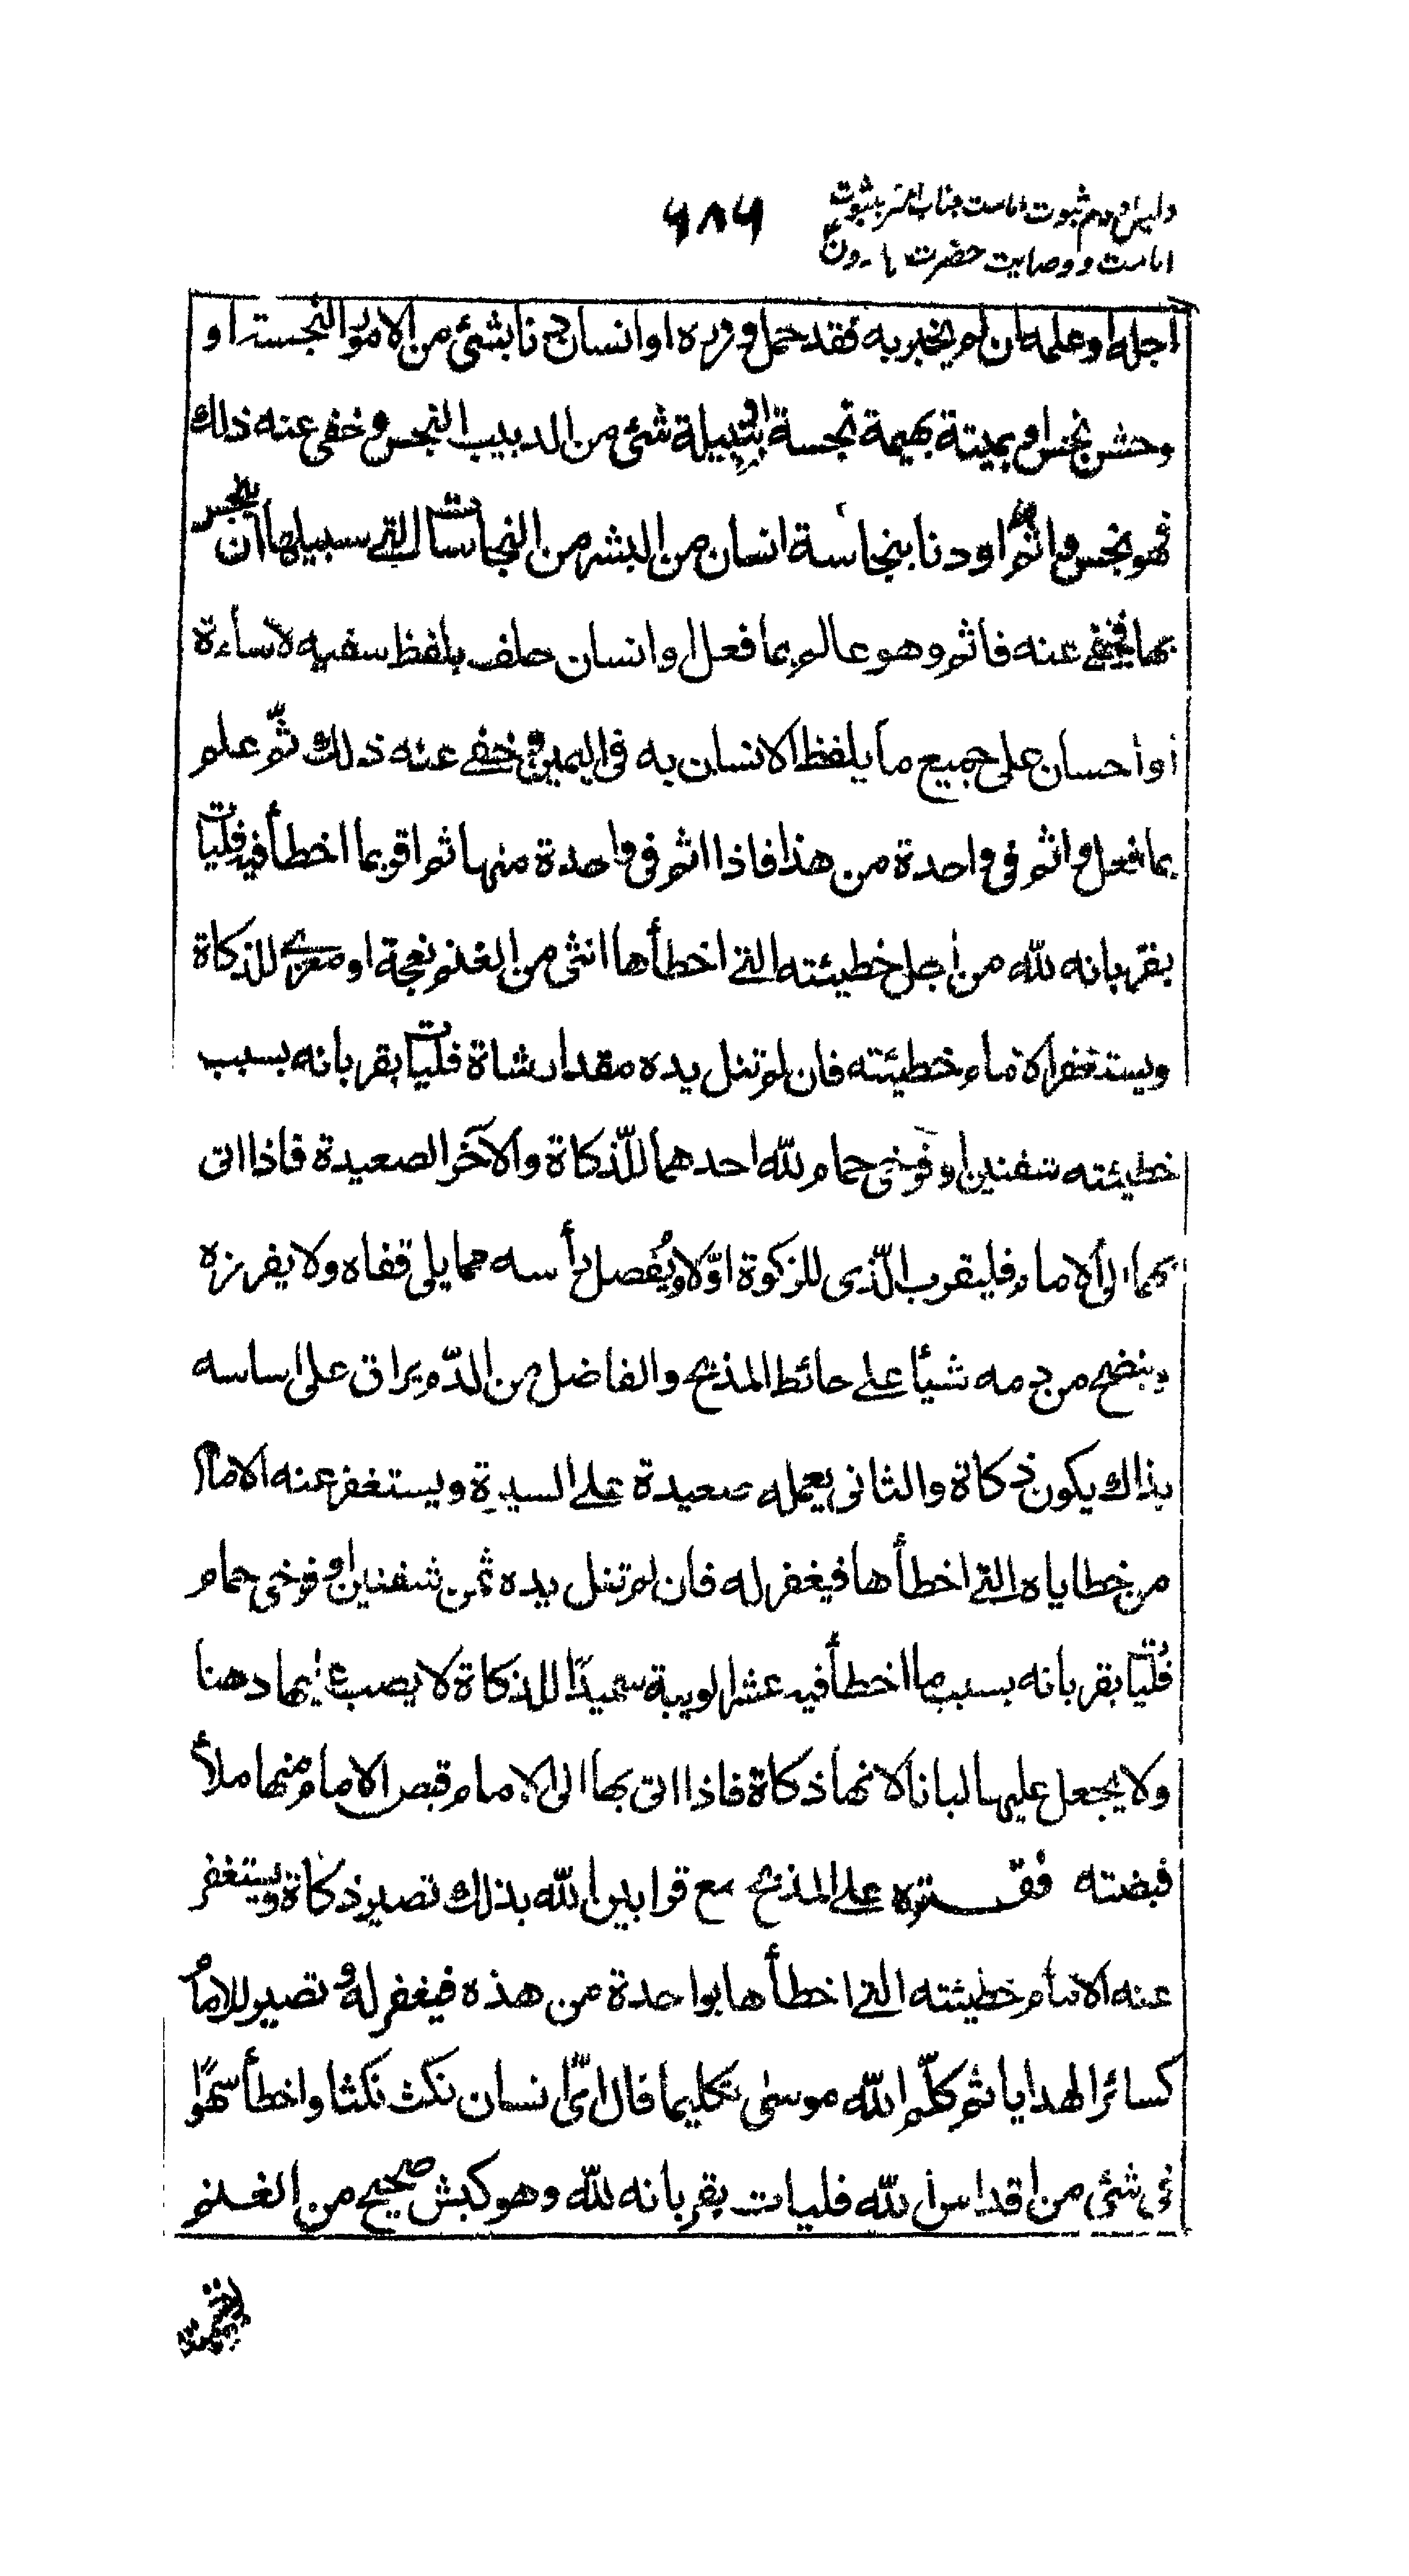 دلیل دوم ثبوت امامت جناب امیر بثبوت
۶۸۶
امامت و وصایت حضرت هارون
اجله او علمه ان لم يخبر به فقد حمل وزره او انسان دنا بشئ من الامور النجسة او
وحش نجس او بميتة بهيمة نجسة او شئ من الدبيب النجس وخفى عنه ذلك
فهو نجس واثم او دنا بنجاسة انسان من البشر من النجاسات التے سبيلها ان يتنجس
بها فخفے عنه فاثم وهو عالم بما فعل او انسان حلف بلفظ سفيه لاساءة
او احسان على جميع ما يلفظ الانسان به فى اليمين وخفے عنه ذلك ثمّ علم
بما فعل واثم فى واحدة من هذا فاذا اثم فى واحدة منها ثم اقر بما اخطأ فيه فليات
بقربانه للّه من اجل خطيئته التے اخطأها انثى من الغنم نعجة او معزے للذكاة
ويستغفر الامام خطيئته فان لم تنل يده مقدار شاة فليات بقربانه بسبب
خطيئته شفنين او فرخى حمام للّه احدهما للّذكاة والآخر الصعيدة فاذا اتى
بهما الى الامام فليقرب الّذى للزكوة اوّلا ويُفصل رأسه مما يلى قفاه ولا يفرزه
وينضح من دمه شيأ علے حائط المذبح والفاضل من الدّم يراق على اساسه
بذاك يكون ذكاة والثانى يعمله صعيدة علے السيرة ويستغفر عنه الامام
من خطاياه التے اخطأها فيغفر له فان لم تنل يده ثمن شفنين او فرخى حمام
فليات بقربانه بسبب ما اخطأ فيه عشر الويبة سميدًا للذكاة لا يصب عليها دهنا
ولا يجعل عليها لبانا لانها ذكاة فاذا اتى بها الى الامام قبص الامام منها ملأ
قبضته فقتره علے المذبح مع قرابين اللّه بذلك تصير ذكاة ويستغفر
عنه الامام خطيئته التے اخطأها بواحدة من هذه فيغفر له وتصير للامام
كسائر الهدايا ثم كلّم اللّه موسٰى تكليما قال اىّ انسان نكث نكثا واخطأ سهوًا
فى شئ من اقداس اللّه فليات بقربانه للّه وهو كبش صحيح من الغنم